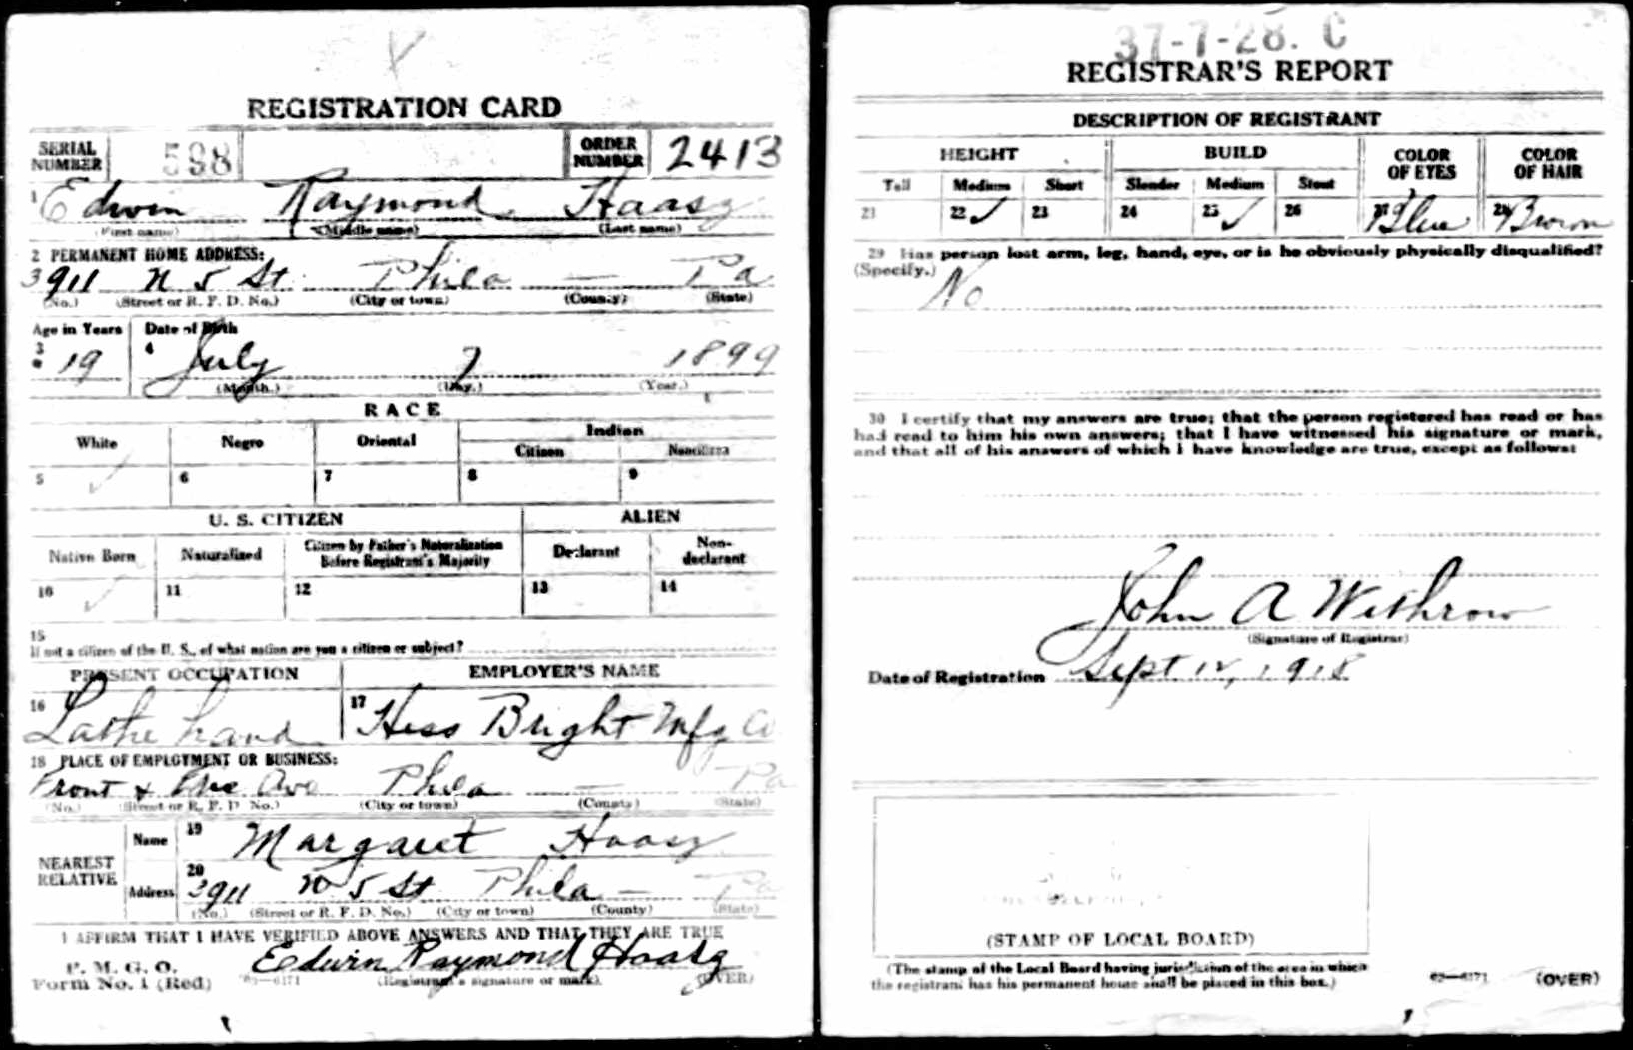 REGISTRATION CARD
SERIAL NUMBER 598 ORDER NUMBER 2413
1 Edwin Raymond Haasz
(First name) (Middle name) (Last name)
2 PERMANENT HOME ADDRESS:
3911 N 5 St. Phila — Pa
(No.) (Street or R. F. D. No.) (City or town) (County) (State)
Age in Years Date of Birth
3 19 4 July 7 1899
(Month.) (Day.) (Year.)
RACE
White Negro Oriental Indian
Citizen Noncitizen
5 ✓ 6 7 8 9
U. S. CITIZEN ALIEN
Native Born Naturalized Citizen by Father's Naturalization Before Registrant's Majority Declarant Non-declarant
10 ✓ 11 12 13 14
15
If not a citizen of the U. S., of what nation are you a citizen or subject?
PRESENT OCCUPATION EMPLOYER'S NAME
16 Lathe hand 17 Hess Bright Mfg Co
18 PLACE OF EMPLOYMENT OR BUSINESS:
Front & Erie Ave Phila — Pa
(No.) (Street or R. F. D. No.) (City or town) (County) (State)
NEAREST RELATIVE
Name 19 Margaret Haasz
Address 20 3911 N 5 St Phila — Pa
(No.) (Street or R. F. D. No.) (City or town) (County) (State)
I AFFIRM THAT I HAVE VERIFIED ABOVE ANSWERS AND THAT THEY ARE TRUE
P. M. G. O.
Form No. 1 (Red) Edwin Raymond Haasz
(Registrant's signature or mark) (OVER)
37-7-28. C
REGISTRAR'S REPORT
DESCRIPTION OF REGISTRANT
HEIGHT BUILD COLOR OF EYES COLOR OF HAIR
Tall Medium Short Slender Medium Stout
21 22 ✓ 23 24 25 ✓ 26 27 Blue 28 Brown
29 Has person lost arm, leg, hand, eye, or is he obviously physically disqualified?
(Specify.) No
30 I certify that my answers are true; that the person registered has read or has
had read to him his own answers; that I have witnessed his signature or mark,
and that all of his answers of which I have knowledge are true, except as follows:
John A Withrow
(Signature of Registrar)
Date of Registration Sept 12, 1918
(STAMP OF LOCAL BOARD)
(The stamp of the Local Board having jurisdiction of the area in which
the registrant has his permanent home shall be placed in this box.)
(OVER)